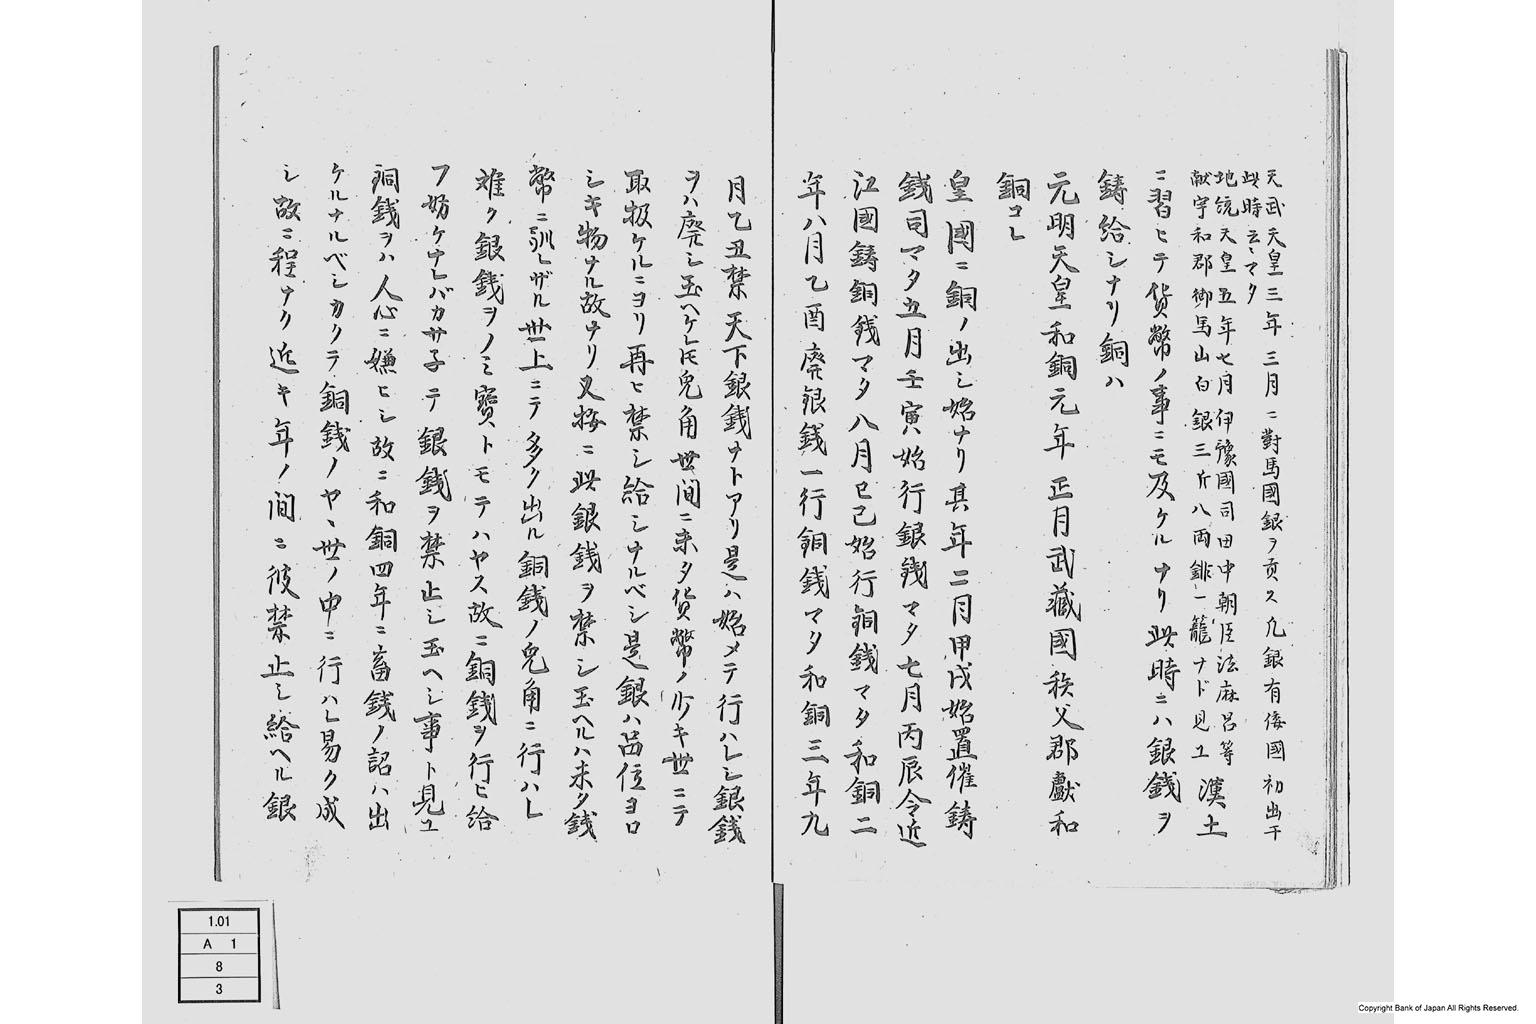 天武天皇三年三月ニ對馬國銀ヲ貢ス凡銀有倭國初出于
此時云々マタ
地統天皇五年七月伊豫國司田中朝臣法麻呂等
献宇和郡御馬山白銀三斤八両𨥥一籠ナド見ユ漢土
ニ習ヒテ貨幣ノ事ニモ及ケルナリ此時ニハ銀銭ヲ
鋳給シナリ銅ハ
元明天皇和銅元年正月武藏國秩父郡獻和
銅コレ
皇國ニ銅ノ出シ始ナリ其年二月甲戌始置催鋳
銭司マタ五月壬寅始行銀銭マタ七月丙辰令近
江國鋳銅銭マタ八月己巳始行銅銭マタ和銅二
年八月乙酉廃銀銭一行銅銭マタ和銅三年九
月乙丑禁天下銀銭ナトアリ是ハ始メテ行ハレシ銀銭
ヲハ廃シ玉ヘケレ𪜈兎角世间ニ未タ貨幣ノ少キ世ニテ
取扱ケルニヨリ再ヒ禁シ給シナルベシ是銀ハ品位ヨロ
シキ物ナル故ナリ又按ニ此銀銭ヲ禁シ玉ヘルハ未タ銭
幣ニ訓レザル世上ニテ多ク出ル銅銭ノ兎角ニ行ハレ
難ク銀銭ヲノミ寳トモテハヤス故ニ銅銭ヲ行ヒ給
フ妨ケナレバカサ子テ銀銭ヲ禁止シ玉ヘシ事ト見ユ
銅銭ヲハ人心ニ嫌ヒシ故ニ和銅四年ニ畜銭ノ詔ハ出
ケルナルベシカクテ銅銭ノヤヽ世ノ中ニ行ハレ易ク成
シ故ニ程ナク近キ年ノ间ニ彼禁止シ給ヘル銀
1.01
A 1
8
3
Copyright Bank of Japan All Rights Reserved.